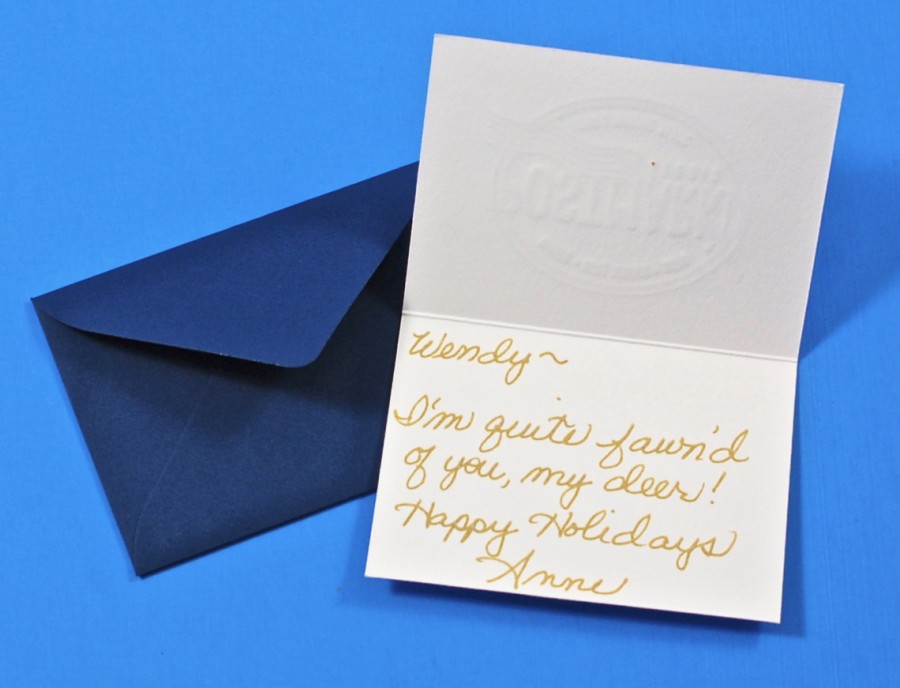 Wendy~
I'm quite fawn'd
of you, my deer!
Happy Holidays
Anne